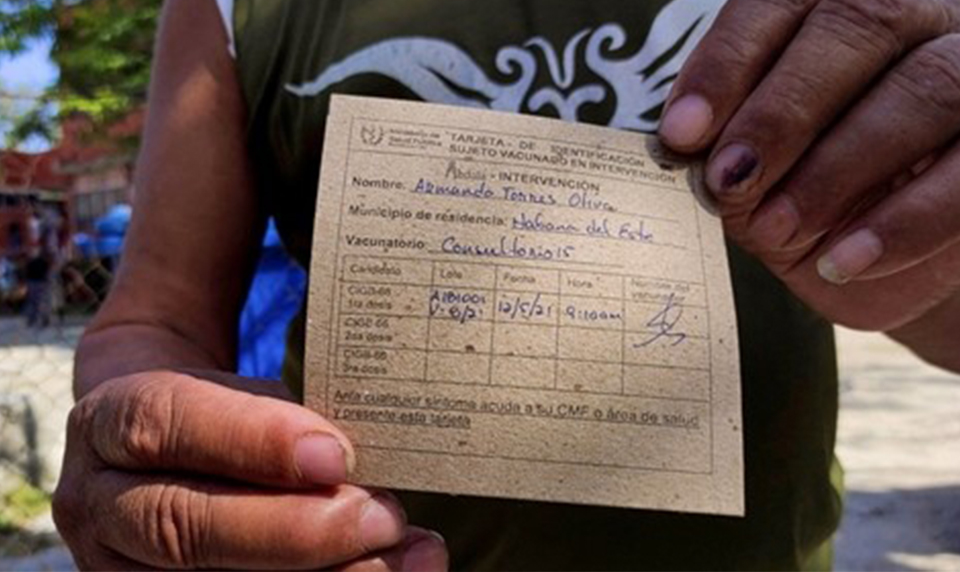 Ministerio de
Salud Pública
TARJETA - DE IDENTIFICACIÓN
SUJETO VACUNADO EN INTERVENCIÓN
Abdala - INTERVENCIÓN
Nombre: Armando Torres Oliva
Municipio de residencia: Habana del Este
Vacunatorio: Consultorio 15
Candidato Lote Fecha Hora Nombre del
CIGB-66
1ra dosis 12/5/21 9:10am
CIGB-66
2da dosis
CIGB-66
3ra dosis
Ante cualquier síntoma acuda a su CMF o área de salud
y presente esta tarjeta